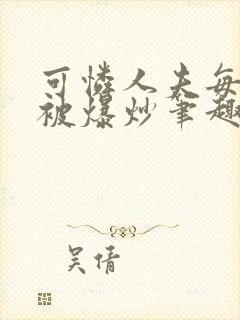 可怜人夫每
被爆炒笔趣
吴倩